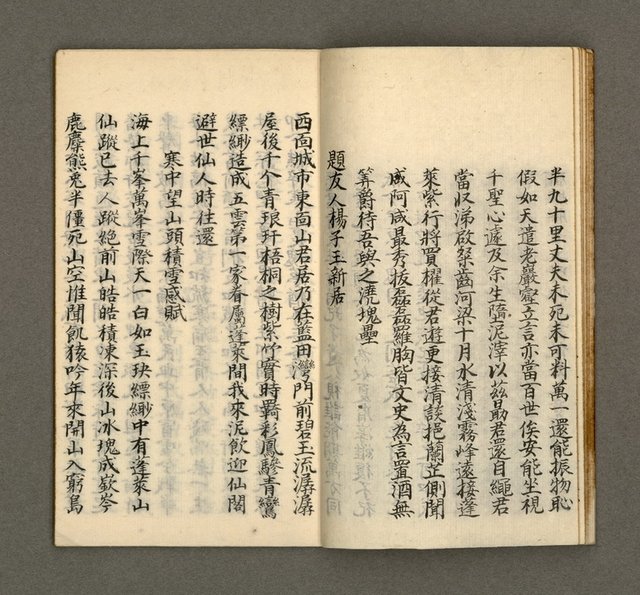 半九十里丈夫未死未可料萬一還能振物恥
假如天遣老巖壑立言亦當百世俟安能坐視
千聖心遽及余生隳泥滓以茲勗君還自繩君
當収涕啟粲齒河梁十月水清淺霧峰遠接蓬
萊紫行將買櫂從君遊更接清談挹蘭芷側聞
咸阿咸最秀拔磊磊羅胸皆文史為言置酒無
筭爵待吾與之澆塊壘
題友人楊子玉新居
西面城市東面山君居乃在藍田灣門前碧玉流潺潺
屋後千个青琅玕梧桐之樹紫竹實時覊彩鳳驂青鸞
縹緲造成五雲第一家眷屬蓬來間我來泥飲迎仙閣
避世仙人時往還
寒中望山頭積雪感賦
海上千峯萬峯雪際天一白如玉玦縹緲中有蓬萊山
仙蹤已去人蹤絕前山皓皓積凍深後山冰塊成嶔岑
鹿麋熊兎半僵死山空惟聞飢猿吟年來開山入窮島